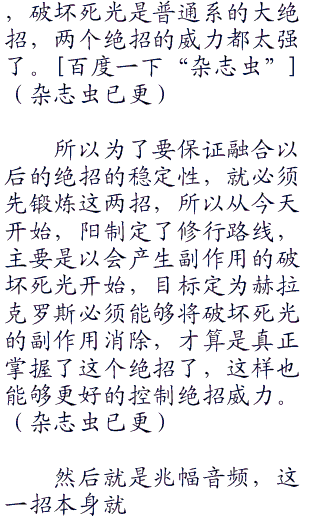 ，破坏死光是普通系的大绝
招，两个绝招的威力都太强
了。[百度一下“杂志虫”]
（杂志虫已更）
所以为了要保证融合以
后的绝招的稳定性，就必须
先锻炼这两招，所以从今天
开始，阳制定了修行路线，
主要是以会产生副作用的破
坏死光开始，目标定为赫拉
克罗斯必须能够将破坏死光
的副作用消除，才算是真正
掌握了这个绝招了，这样也
能够更好的控制绝招威力。
（杂志虫已更）
然后就是兆幅音频，这
一招本身就